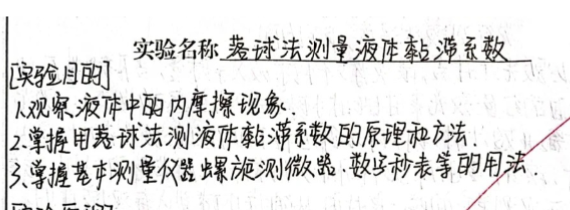 实验名称 落球法测量液体黏滞系数
[实验目的]
1.观察液体中的内摩擦现象.
2.掌握用落球法测液体黏滞系数的原理和方法.
3.掌握基本测量仪器螺旋测微器.数字秒表等的用法.